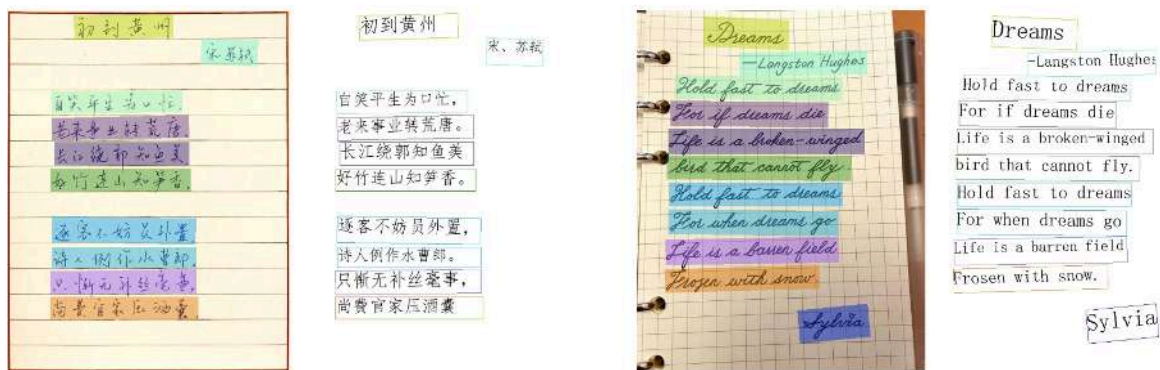 初到黄州
宋苏轼
自笑平生为口忙.
老来事业转荒唐.
长江绕郭知鱼美
好竹连山知笋香.
逐客不妨员外置
诗人例作水曹郎
只惭无补丝毫事.
尚费官家压酒囊.
初到黄州
宋、苏轼
自笑平生为口忙，
老来事业转荒唐。
长江绕郭知鱼美
好竹连山知笋香。
逐客不妨员外置，
诗人例作水曹郎。
只惭无补丝毫事，
尚费官家压酒囊
Dreams
—Langston Hughes
Hold fast to dreams
For if dreams die
Life is a broken-winged
bird that cannot fly.
Hold fast to dreams
For when dreams go
Life is a barren field
Frozen with snow.
Sylvia
Dreams
-Langston Hughes
Hold fast to dreams
For if dreams die
Life is a broken-winged
bird that cannot fly.
Hold fast to dreams
For when dreams go
Life is a barren field
Frosen with snow.
Sylvia